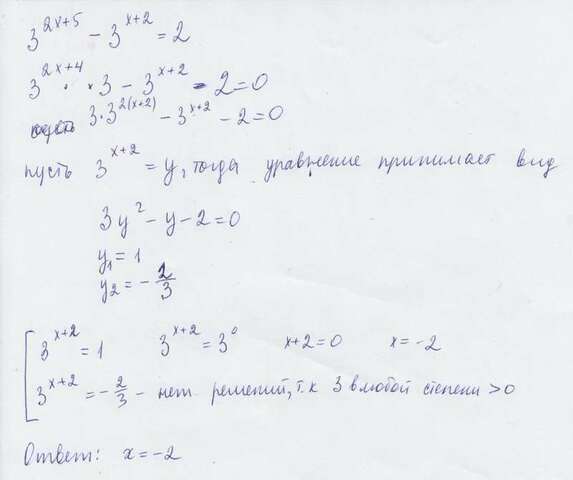 3^{2x+5} - 3^{x+2} = 2
3^{2x+4} · 3 - 3^{x+2} - 2 = 0
3·3^{2(x+2)} - 3^{x+2} - 2 = 0
пусть 3^{x+2} = y, тогда уравнение принимает вид
3y² - y - 2 = 0
y₁ = 1
y₂ = -2/3
3^{x+2} = 1 3^{x+2} = 3⁰ x+2=0 x=-2
3^{x+2} = -2/3 - нет решений, т.к 3 в любой степени >0
Ответ: x=-2